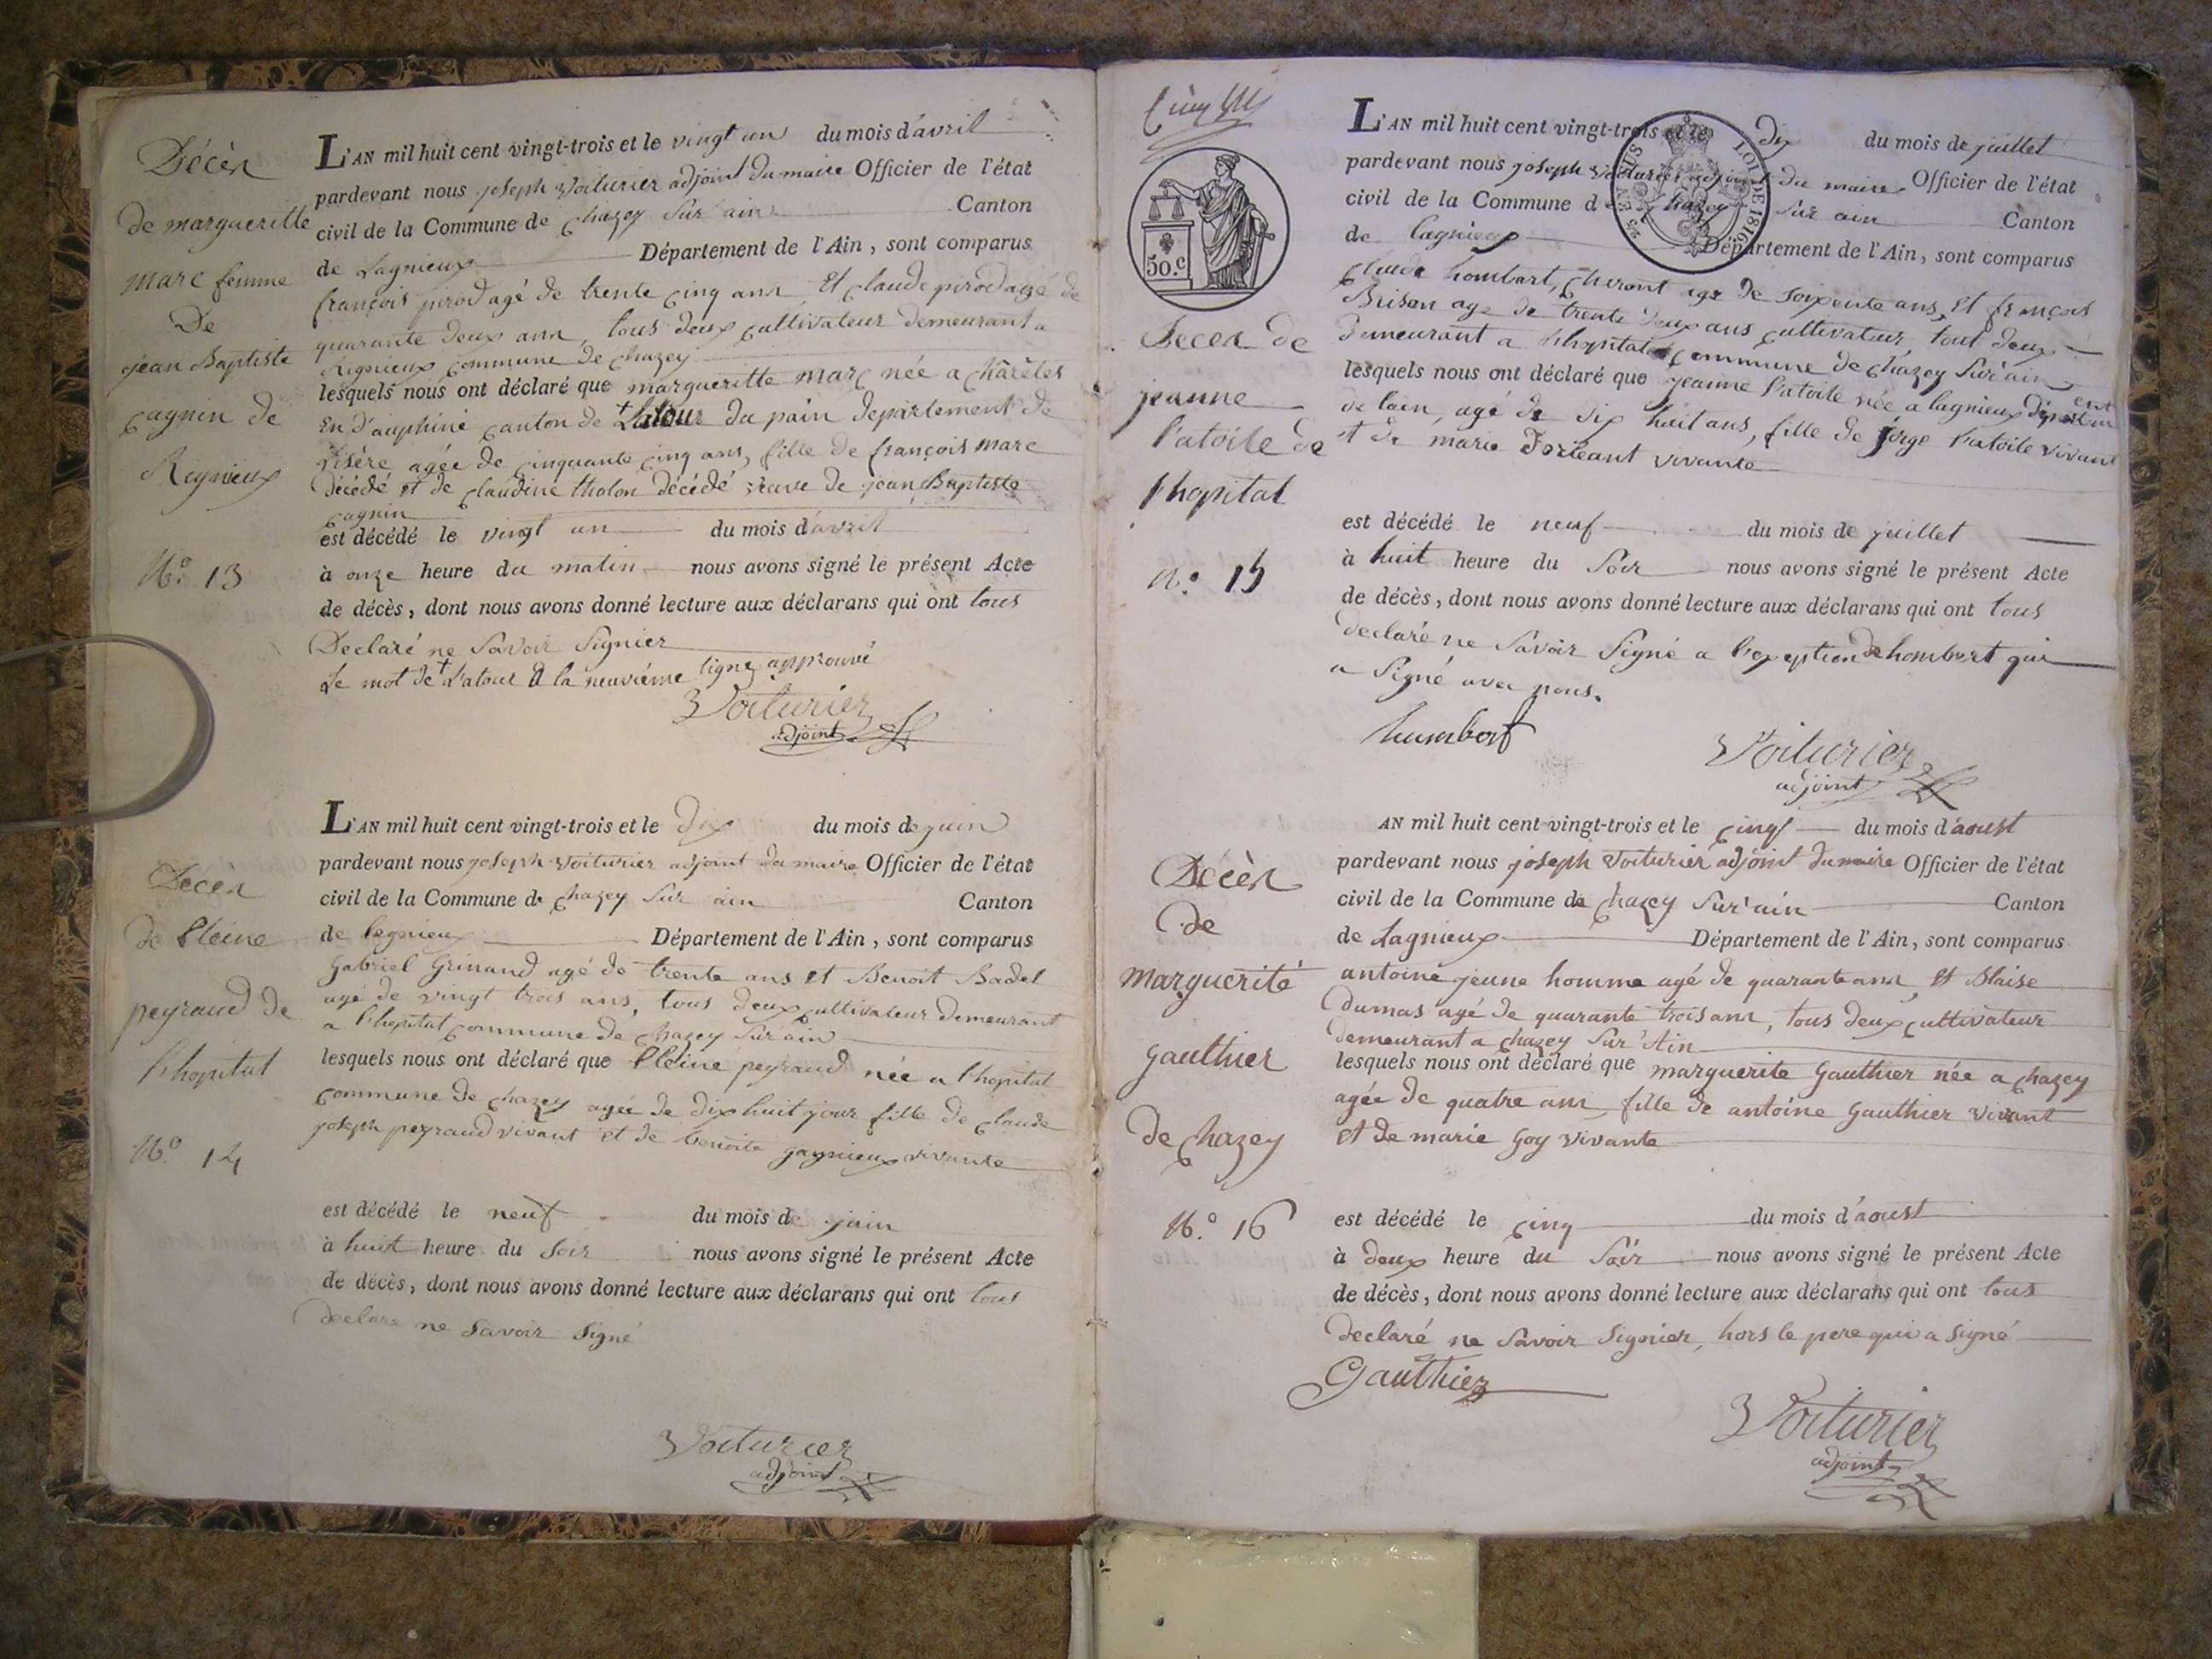 Décès
de margueritte
marc femme
De
jean Baptiste
cagnin de
Rignieux
N.° 13
L'AN mil huit cent vingt-trois et le vingt un du mois d'avril
pardevant nous joseph Voiturier adjoint du maire Officier de l'état
civil de la Commune de chazey Sur ain Canton
de Lagnieux Département de l'Ain, sont comparus
françois pirod agé de trente cinq ans Et claude pirod agé de
quarante deux ans, tous deux cultivateur demeurant a
Rignieux commune de chazey
lesquels nous ont déclaré que margueritte marc née a charètes
En d'auphiné canton de + Latour du pain departement de
L'isère agée de cinquante cinq ans, fille de françois marc
décédé et de claudine tholon décédé veuve de jean Baptiste
cagnin
est décédé le vingt un du mois d'avril
à onze heure du matin nous avons signé le présent Acte
de décès, dont nous avons donné lecture aux déclarans qui ont tous
Declaré ne Savoir Signier
Le mot de + Latour a la neuvième ligne approuvé
Voiturier
adjoint
Décès
de
peyraud de
l'hopital
N.° 14
L'AN mil huit cent vingt-trois et le dix du mois de juin
pardevant nous joseph Voiturier adjoint du maire Officier de l'état
civil de la Commune de chazey Sur ain Canton
de lagnieux Département de l'Ain, sont comparus
Gabriel Grinand agé de trente ans et Benoit Badet
agé de vingt trois ans, tous deux cultivateur demeurant
a l'hopital commune de chazey Sur ain
lesquels nous ont déclaré que peyraud née a l'hopital
commune de chazey agée de dix huit jour fille de claude
joseph peyraud vivant et de benoite gagnieux vivante
est décédé le neuf du mois de juin
à huit heure du Soir nous avons signé le présent Acte
de décès, dont nous avons donné lecture aux déclarans qui ont tous
declare ne Savoir Signé
Voiturier
adjoint
50.c
LOI DE 1816
Decès de
jeanne
l'atoile de
l'hopital
N.° 15
L'AN mil huit cent vingt-trois et le dix du mois de juillet
pardevant nous joseph Voiturier adjoint du maire Officier de l'état
civil de la Commune de chazey Sur ain Canton
de lagnieux Département de l'Ain, sont comparus
claude hombart, age de soixente ans, Et françois
Brison age de trente deux ans cultivateur tout deux
demeurant a l'hopital commune de chazey Sur ain
lesquels nous ont déclaré que jeanne l'atoile née a lagnieux département
de lain, agé de dix huit ans, fille de jorge l'atoile vivant
et de marie Dorleant vivante
est décédé le neuf du mois de juillet
à huit heure du Soir nous avons signé le présent Acte
de décès, dont nous avons donné lecture aux déclarans qui ont tous
declaré ne Savoir Signé a l'exeption de hombert qui
a Signé avec nous.
humbert
Voiturier
adjoint
Décès
De
marguerite
gauthier
de chazey
N.° 16
AN mil huit cent vingt-trois et le cinq du mois d'aoust
pardevant nous joseph Voiturier adjoint du maire Officier de l'état
civil de la Commune de chazey Sur'ain Canton
de Lagnieux Département de l'Ain, sont comparus
antoine jeune homme agé de quarante ans, et Blaise
Dumas agé de quarante trois ans, tous deux cultivateur
demeurant a chazey Sur'Ain
lesquels nous ont déclaré que marguerite Gauthier née a chazey
agée de quatre ans fille de antoine Gauthier vivant
et de marie Goy vivante
est décédé le cinq du mois d'aoust
à deux heure du Soir nous avons signé le présent Acte
de décès, dont nous avons donné lecture aux déclarans qui ont tous
declaré ne Savoir Signier, hors le pere qui a signé
Gauthier
Voiturier
adjoint